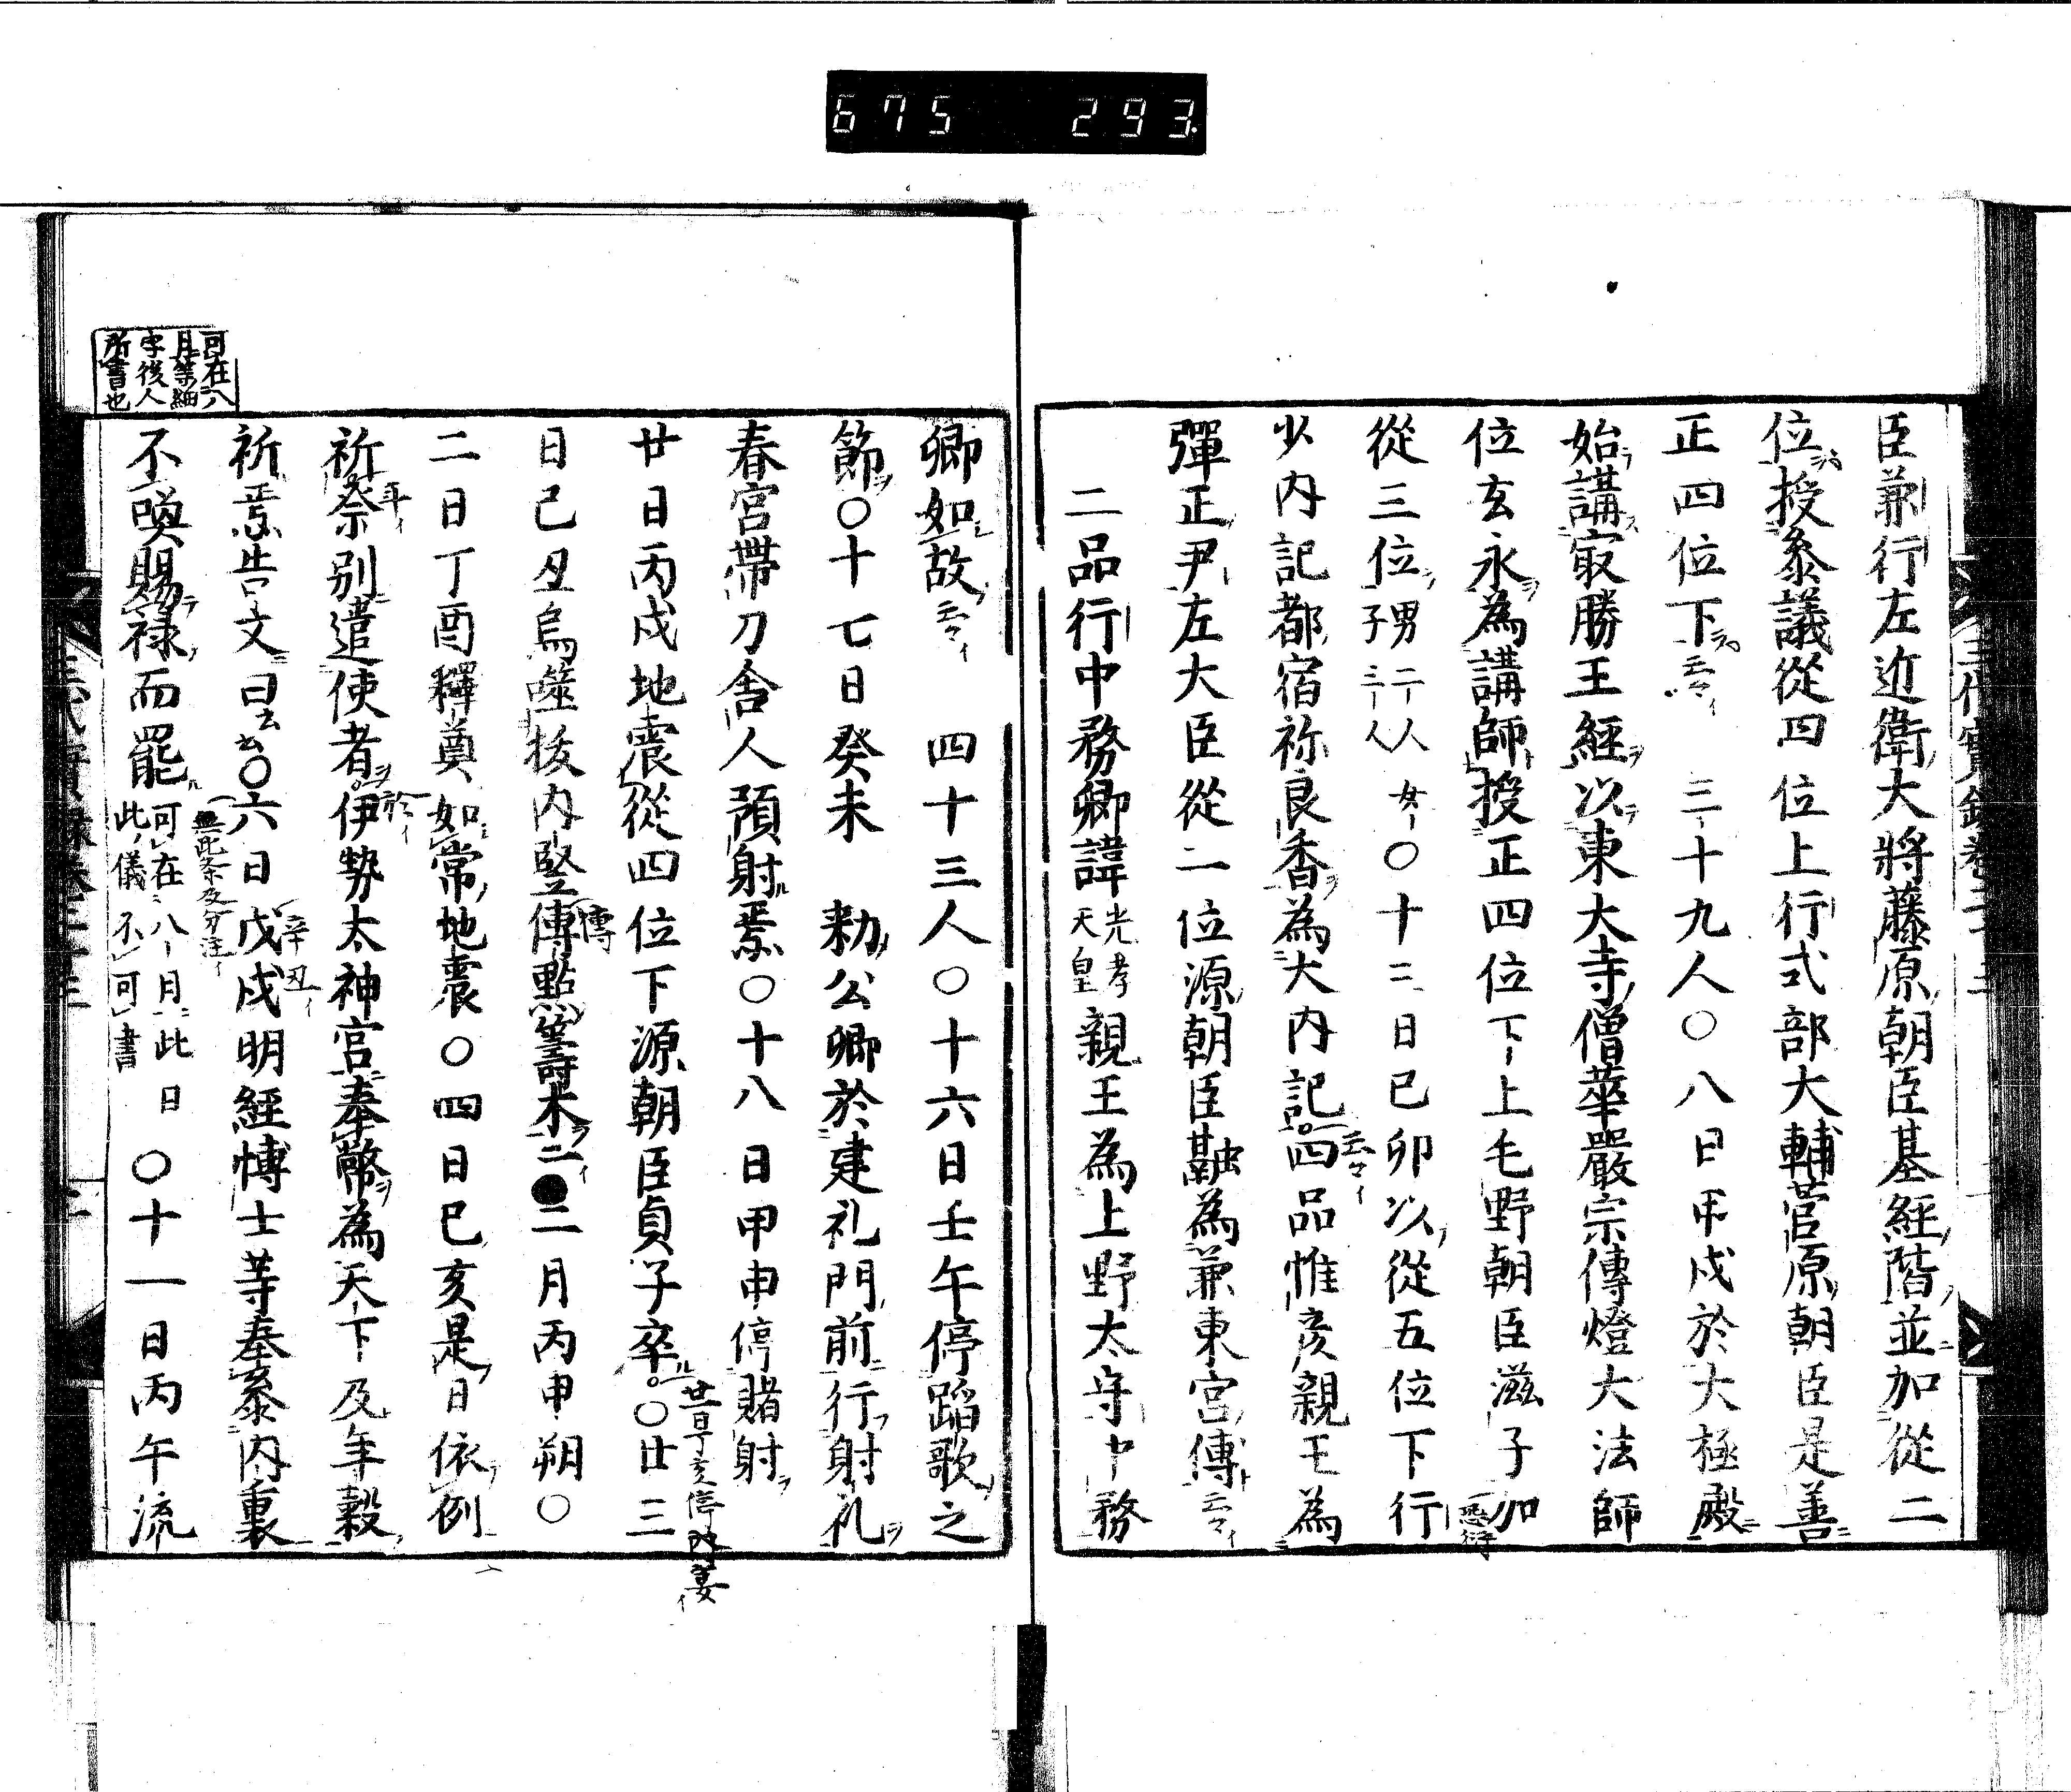 675 293
臣兼行左近衛大將藤原朝臣基經階並加從二
位授叅議從四位上行式部大輔菅原朝臣是善
正四位下云々イ 三十九人〇八日甲戌於大極殿
始講㝡勝王經以東大寺僧華嚴宗傳燈大法師
位玄永為講師授正四位下上毛野朝臣滋子加
從三位男二人女子三人〇十二日己卯以從五位下行
少内記都宿祢良香為大内記云々イ四品惟彦親王為
彈正尹左大臣從一位源朝臣融為兼東宮傳云々イ
二品行中務卿諱光孝天皇親王為上野太守中務
卿如故云々イ 四十三人〇十六日壬午停蹈歌之
節〇十七日癸未 勅公卿於建礼門前行射礼
春宮帶刀舍人預射焉〇十八日甲申停賭射
廿日丙戌地震從四位下源朝臣貞子卒〇廿三
廿一日丁亥停内宴イ
日己丑烏噬拔内竪傳點籌木二〇二月丙申朔〇
二日丁酉釋奠如常地震〇四日己亥是日依例
祈年イ祭別遣使者於イ伊勢太神宮奉幣為天下及年穀
祈焉告文曰云云〇六日戊戌辛丑イ明經博士等奉參内裏
無此条及分注イ
不喚賜禄而罷可在八月此日此儀不可書〇十一日丙午流
可在八
月等細
字後人
所書也